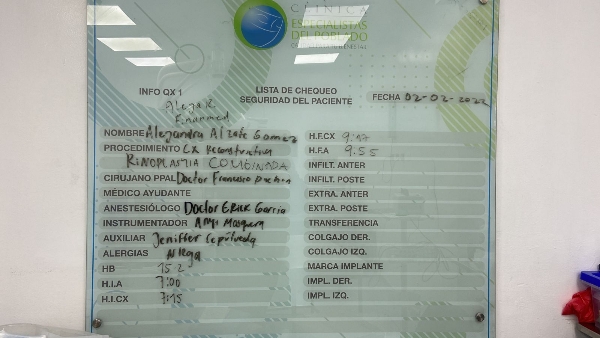 CLÍNICA
ESPECIALISTAS
DEL POBLADO
INFO QX 1
LISTA DE CHEQUEO
SEGURIDAD DEL PACIENTE
FECHA 02-02-2022
NOMBRE Alejandra Alzate Gomez
PROCEDIMIENTO Cx Reconstructiva
RINOPLASTIA COMBINADA
CIRUJANO PPAL Doctor Francisco
MÉDICO AYUDANTE
ANESTESIÓLOGO Doctor ERICK Garcia
INSTRUMENTADOR Mosquera
AUXILIAR Jeniffer Sepúlveda
ALERGIAS Niega
HB 15.2
H.I.A 7:00
H.I.CX 7:15
H.F.CX 9:47
H.F.A 9:55
INFILT. ANTER
INFILT. POSTE
EXTRA. ANTER
EXTRA. POSTE
TRANSFERENCIA
COLGAJO DER.
COLGAJO IZQ.
MARCA IMPLANTE
IMPL. DER.
IMPL. IZQ.